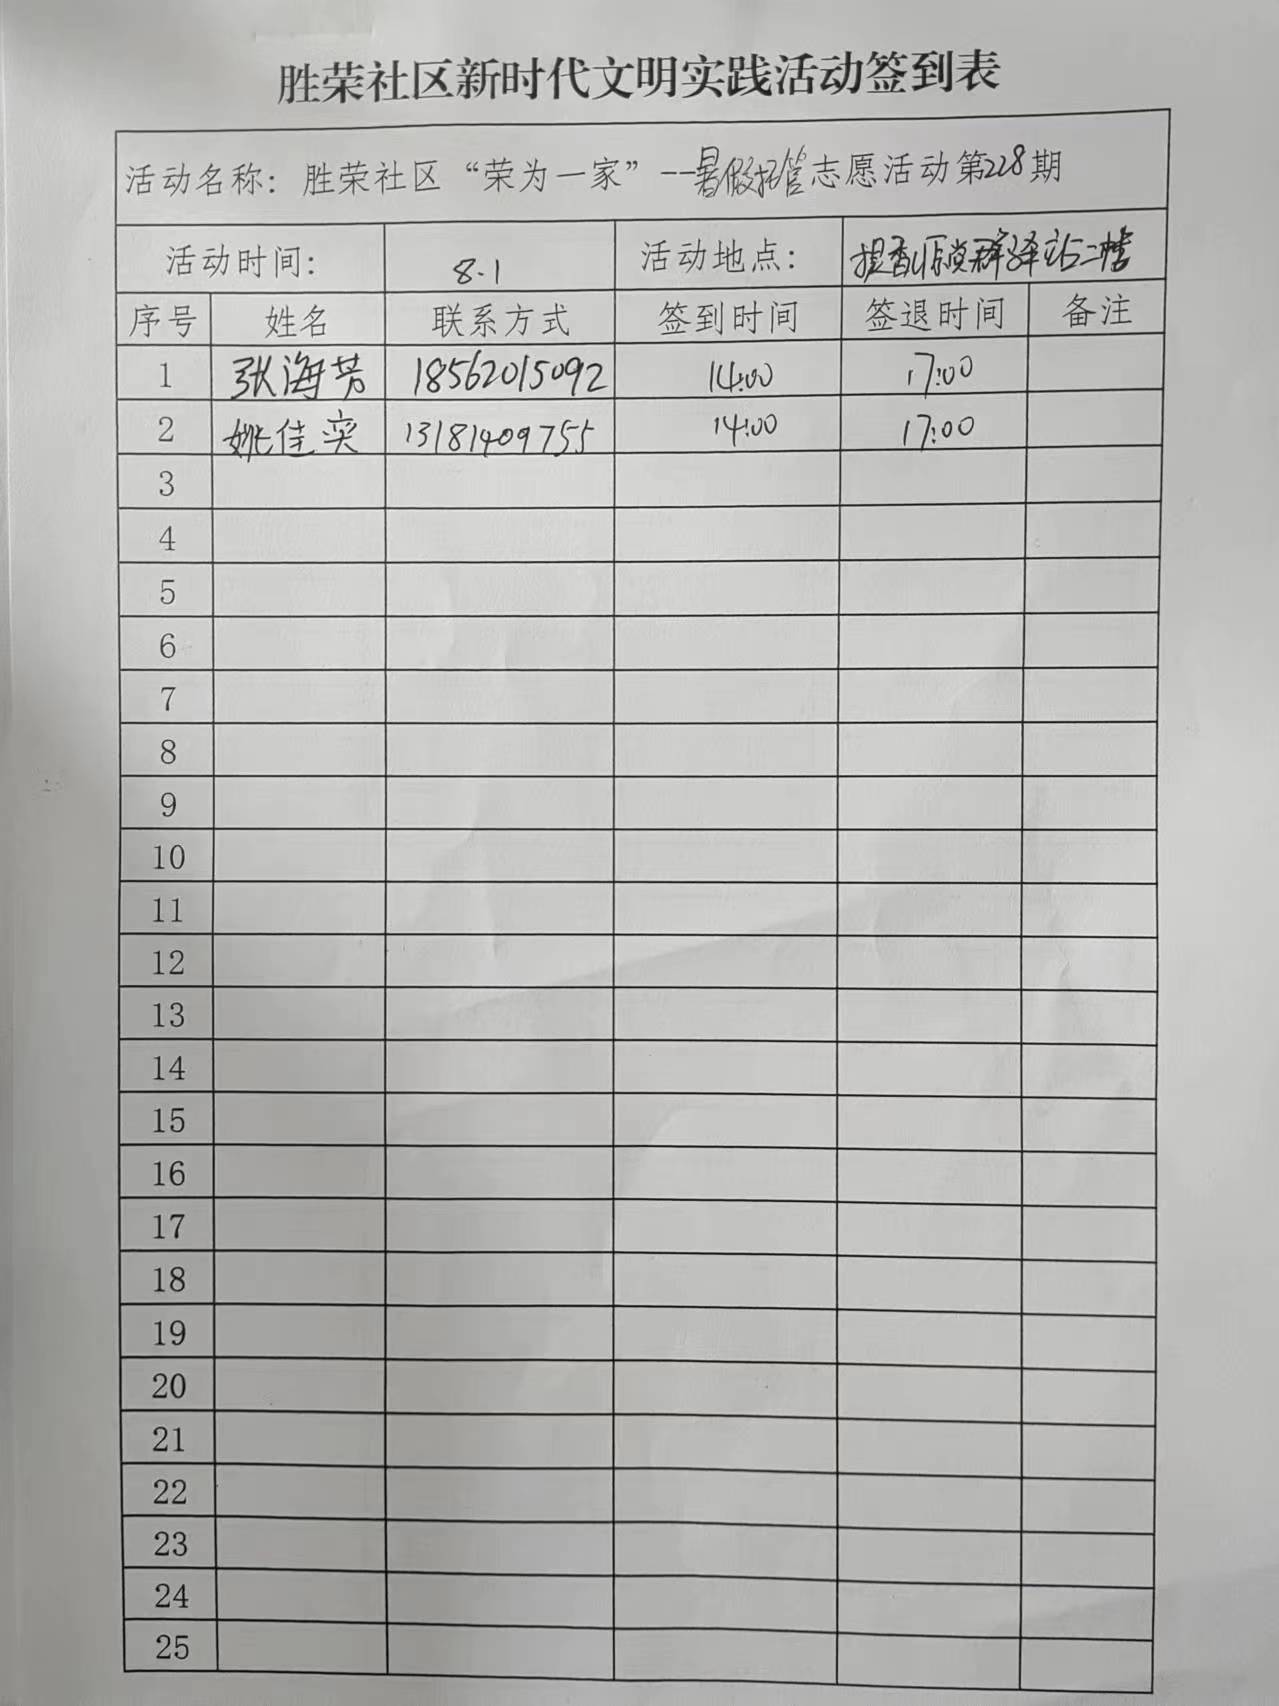 胜荣社区新时代文明实践活动签到表
活动名称：胜荣社区“荣为一家”--暑假托管志愿活动第228期
活动时间： 8.1 活动地点： 提香小区党群驿站二楼
序号 姓名 联系方式 签到时间 签退时间 备注
1 张海芳 18562015092 14:00 17:00
2 姚佳奕 13181409755 14:00 17:00
3
4
5
6
7
8
9
10
11
12
13
14
15
16
17
18
19
20
21
22
23
24
25